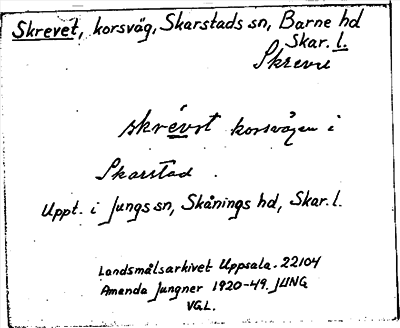 Skrevet, korsväg, Skarstads sn, Barne hd
Skar. l.
Skreve
skrévət korsvägen i
Skarstad.
Uppt. i Jungs sn, Skånings hd, Skar. l.
Landsmålsarkivet Uppsala. 22104
Amanda Jungner 1920-49. JUNG
VGL.